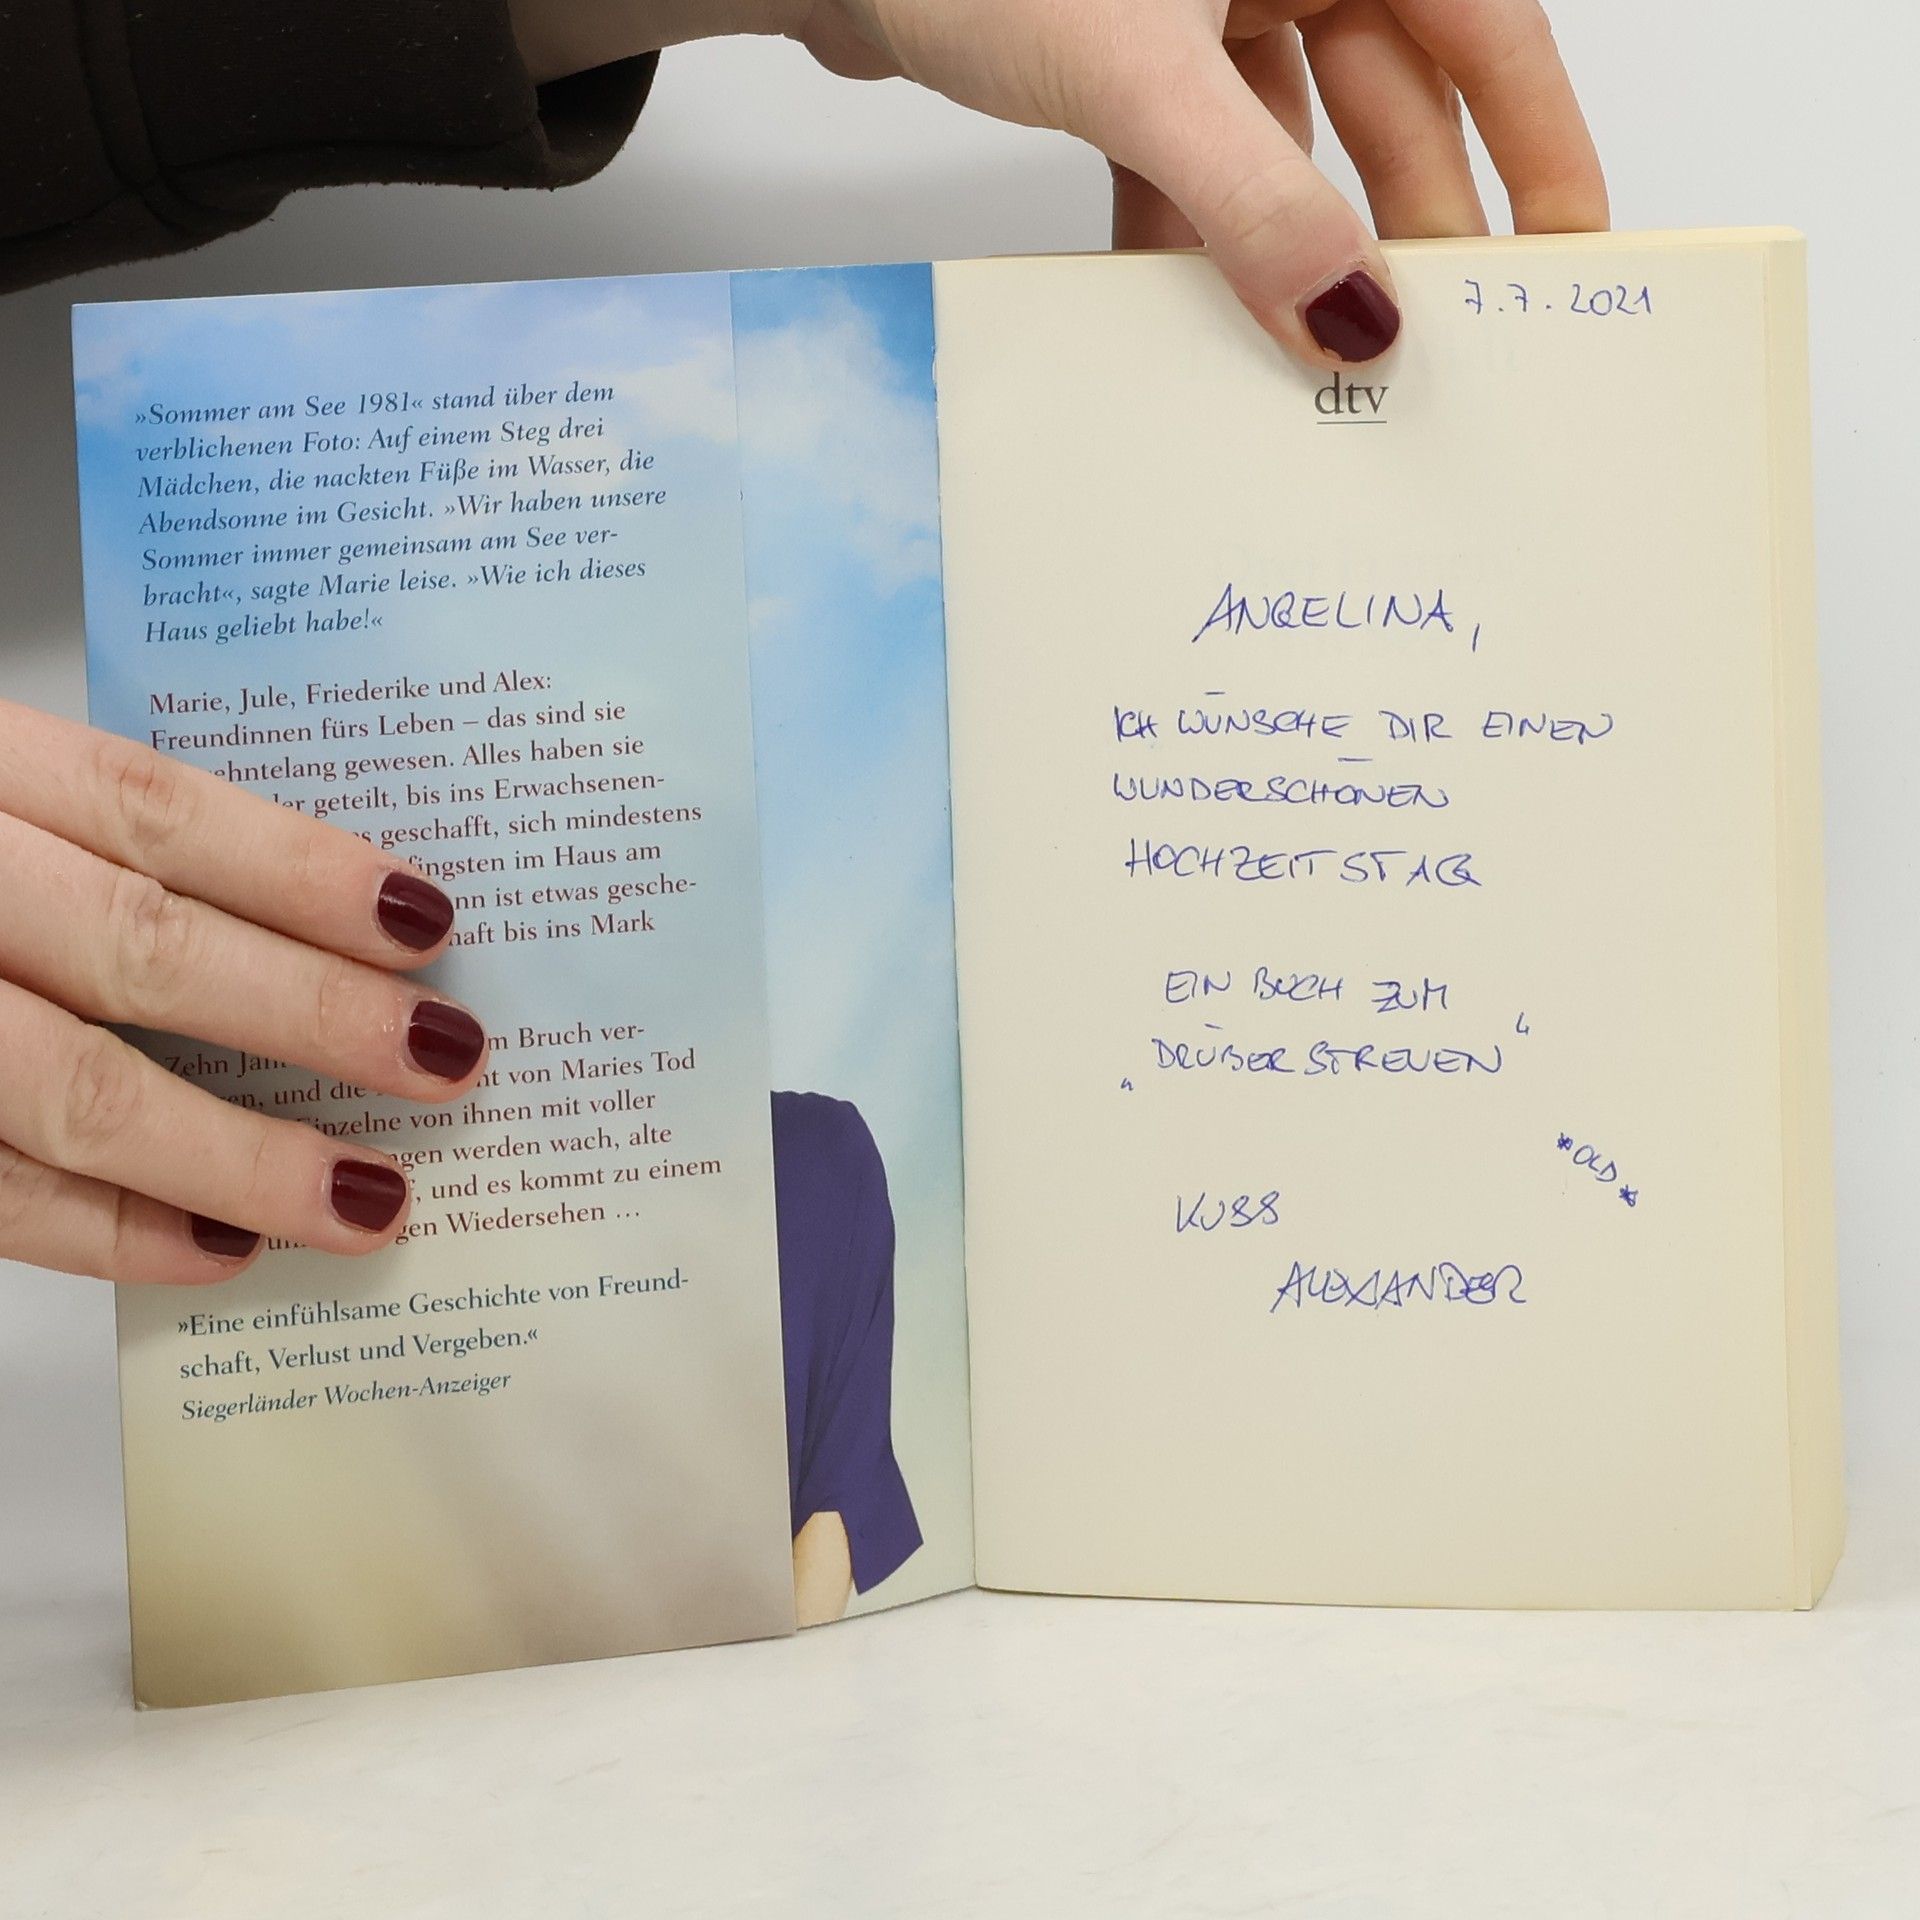 »Sommer am See 1981« stand über dem
verblichenen Foto: Auf einem Steg drei
Mädchen, die nackten Füße im Wasser, die
Abendsonne im Gesicht. »Wir haben unsere
Sommer immer gemeinsam am See ver-
bracht«, sagte Marie leise. »Wie ich dieses
Haus geliebt habe!«
Marie, Jule, Friederike und Alex:
Freundinnen fürs Leben – das sind sie
gewesen. Alles haben sie
geteilt, bis ins Erwachsenen-
geschafft, sich mindestens
im Haus am
ist etwas gesche-
bis ins Mark
Zehn
Bruch ver-
und die von Maries Tod
von ihnen mit voller
werden wach, alte
und es kommt zu einem
Wiedersehen …
»Eine einfühlsame Geschichte von Freund-
schaft, Verlust und Vergeben.«
Siegerländer Wochen-Anzeiger
7.7.2021
dtv
ANGELINA,
ICH WÜNSCHE DIR EINEN
WUNDERSCHÖNEN
HOCHZEITSTAG
EIN BUCH ZUM
„DRÜBERSTREUEN“
*OLD*
KUSS
ALEXANDER